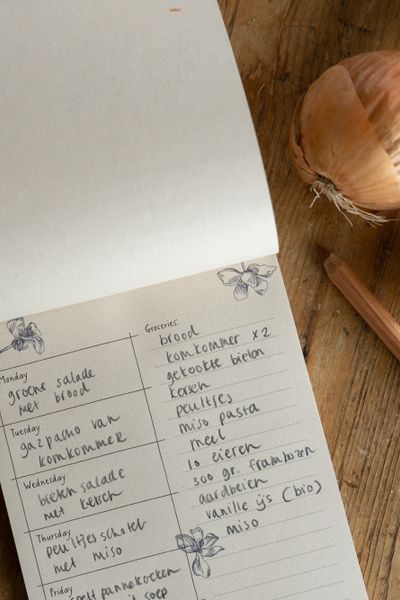 Monday
groene salade
met brood
Tuesday
gazpacho van
komkommer
Wednesday
bieten salade
met kersen
Thursday
peultjes schotel
met miso
Friday
spelt pannekoeken
soep
Groceries:
brood
komkommer x2
gekookte bieten
kersen
peultjes
miso pasta
meel
10 eieren
300 gr. frambozen
aardbeien
vanille ijs (bio)
miso